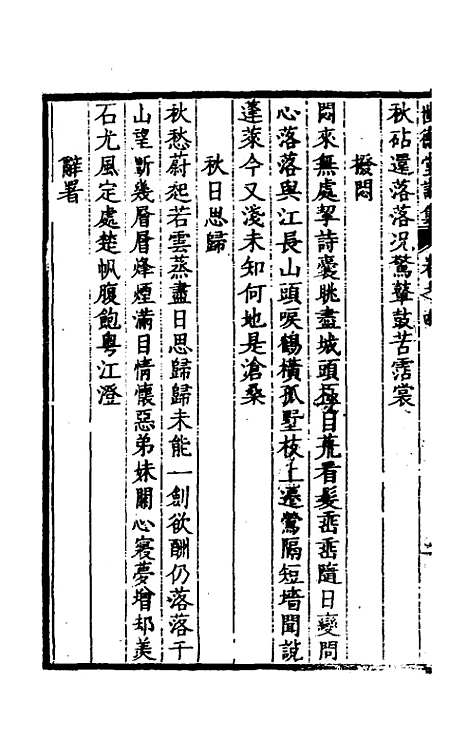 秋砧還落落況驚鼙鼓苦霑裳
撥悶
悶來無處挈詩囊眺盡城頭極目荒看髮𠂹𠂹隨日變問
心落落與江長山頭唳鶴橫孤墅枝上遷鶯隔短墻聞說
蓬萊今又淺未知何地是滄桑
秋日思歸
秋愁蔚起若雲蒸盡日思歸歸未能一劍欲酬仍落落千
山望斷幾層層烽煙滿目情懷惡弟妹關心寢夢增却羨
石尤風定處楚帆腹飽粵江澄
辭署